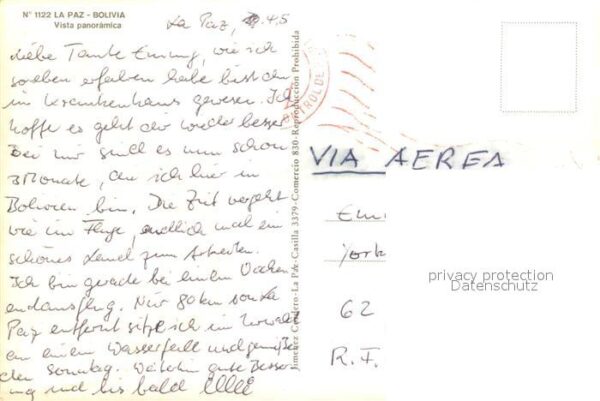 N° 1122 LA PAZ - BOLIVIA
Vista panorámica
La Paz, 4.5
Liebe Tante Emmy, wie ich
soeben erfahren habe bist du
im Krankenhaus gewesen. Ich
hoffe es geht dir wieder besser
Bei mir sind es nun schon
3 Monate, die ich hier in
Bolivien bin. Die Zeit vergeht
wie im Fluge, endlich mal ein
schönes Land zum Arbeiten.
Ich bin gerade bei einem Wochen
endausflug. Nur 80 km von La
Paz entfernt sitze ich im Urwald
an einem Wasserfall und genieße
den Sonntag. Weiterhin gute Besser
ung und bis bald
Jimenez Cordero-La Paz-Casilla 3379-Comercio 830-Reproducción Prohibida
VIA AEREA
Em
York
62
R.F.
privacy protection
Datenschutz